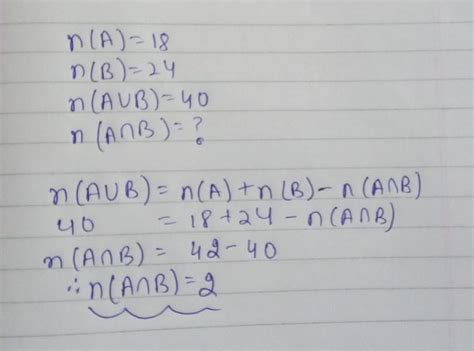 n(A)=18
n(B)=24
n(A∪B)=40
n(A∩B)=?
n(A∪B)=n(A)+n(B)-n(A∩B)
40 = 18+24-n(A∩B)
n(A∩B)= 42-40
∴n(A∩B)=2